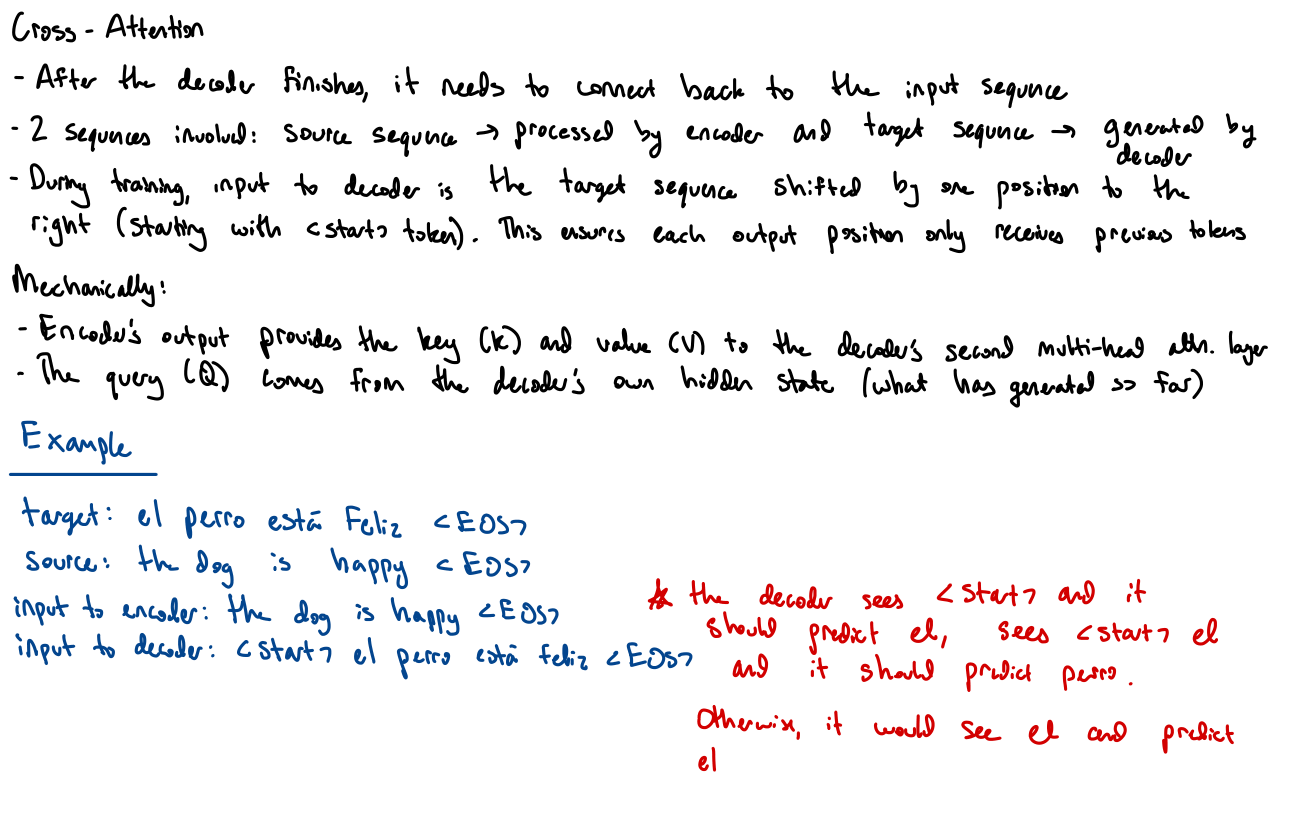 Cross - Attention
- After the decoder finishes, it needs to connect back to the input sequence
- 2 sequences involved: source sequence → processed by encoder and target sequence → generated by
decoder
- During training, input to decoder is the target sequence shifted by one position to the
right (starting with <start> token). This ensures each output position only receives previous tokens
Mechanically:
- Encoder's output provides the key (K) and value (V) to the decoder's second multi-head attn. layer
- The query (Q) comes from the decoder's own hidden state (what has generated so far)
Example
target: el perro está feliz <EOS>
source: the dog is happy <EOS>
input to encoder: the dog is happy <EOS>
input to decoder: <start> el perro está feliz <EOS>
☆ the decoder sees <start> and it
should predict el, sees <start> el
and it should predict perro.
Otherwise, it would see el and predict
el